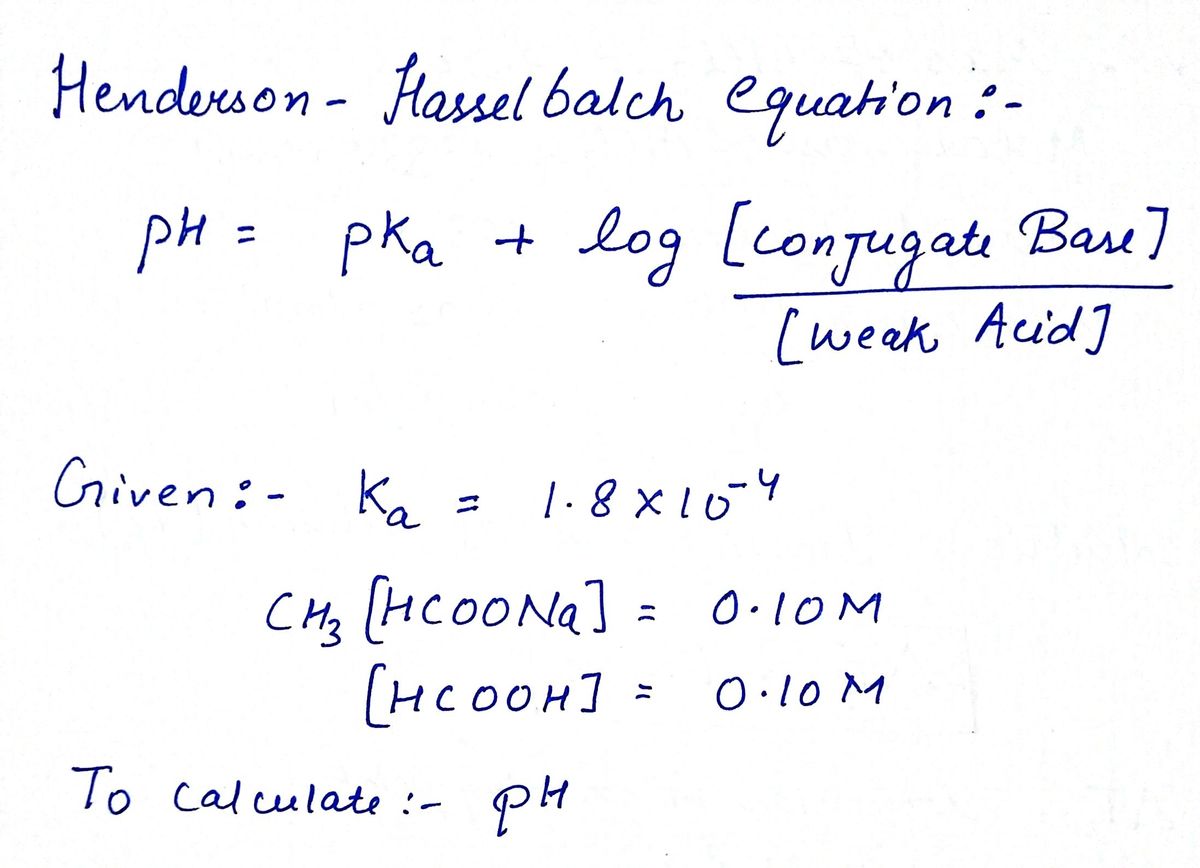 Henderson - Hasselbalch equation :-
pH = pKa + log [conjugate Base]
[weak Acid]
Given :- Ka = 1.8 × 10⁻⁴
CH₃ [HCOONa] = 0.10 M
[HCOOH] = 0.10 M
To calculate :- pH